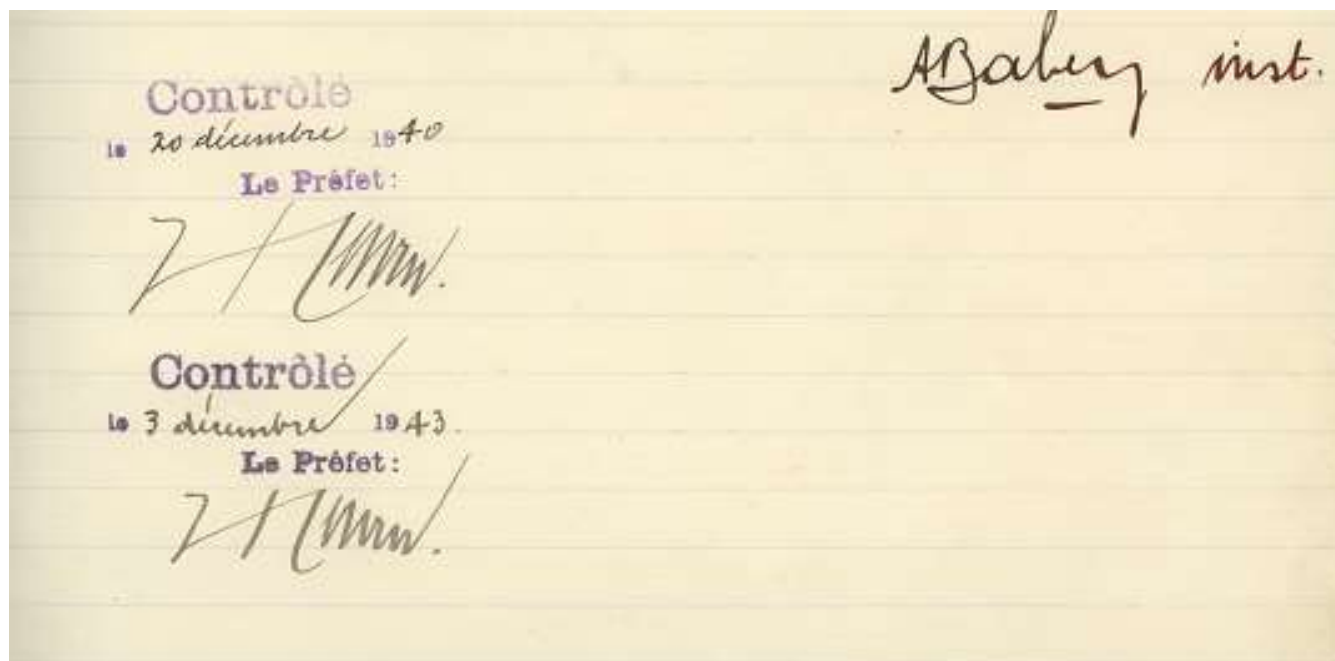 inst.
Contrôlé
le 20 décembre 1940
Le Préfet:
Contrôlé
le 3 décembre 1943.
Le Préfet: